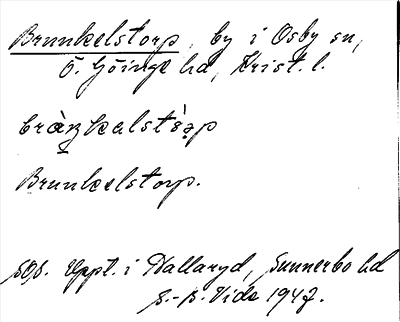 Brunkelstorp, by i Osby sn,
Ö. Göinge hd, Krist. l.
Brunkelstorp.
Uppt. i Hallaryd, Sunnerbo hd
S.-B. Vide 1947.